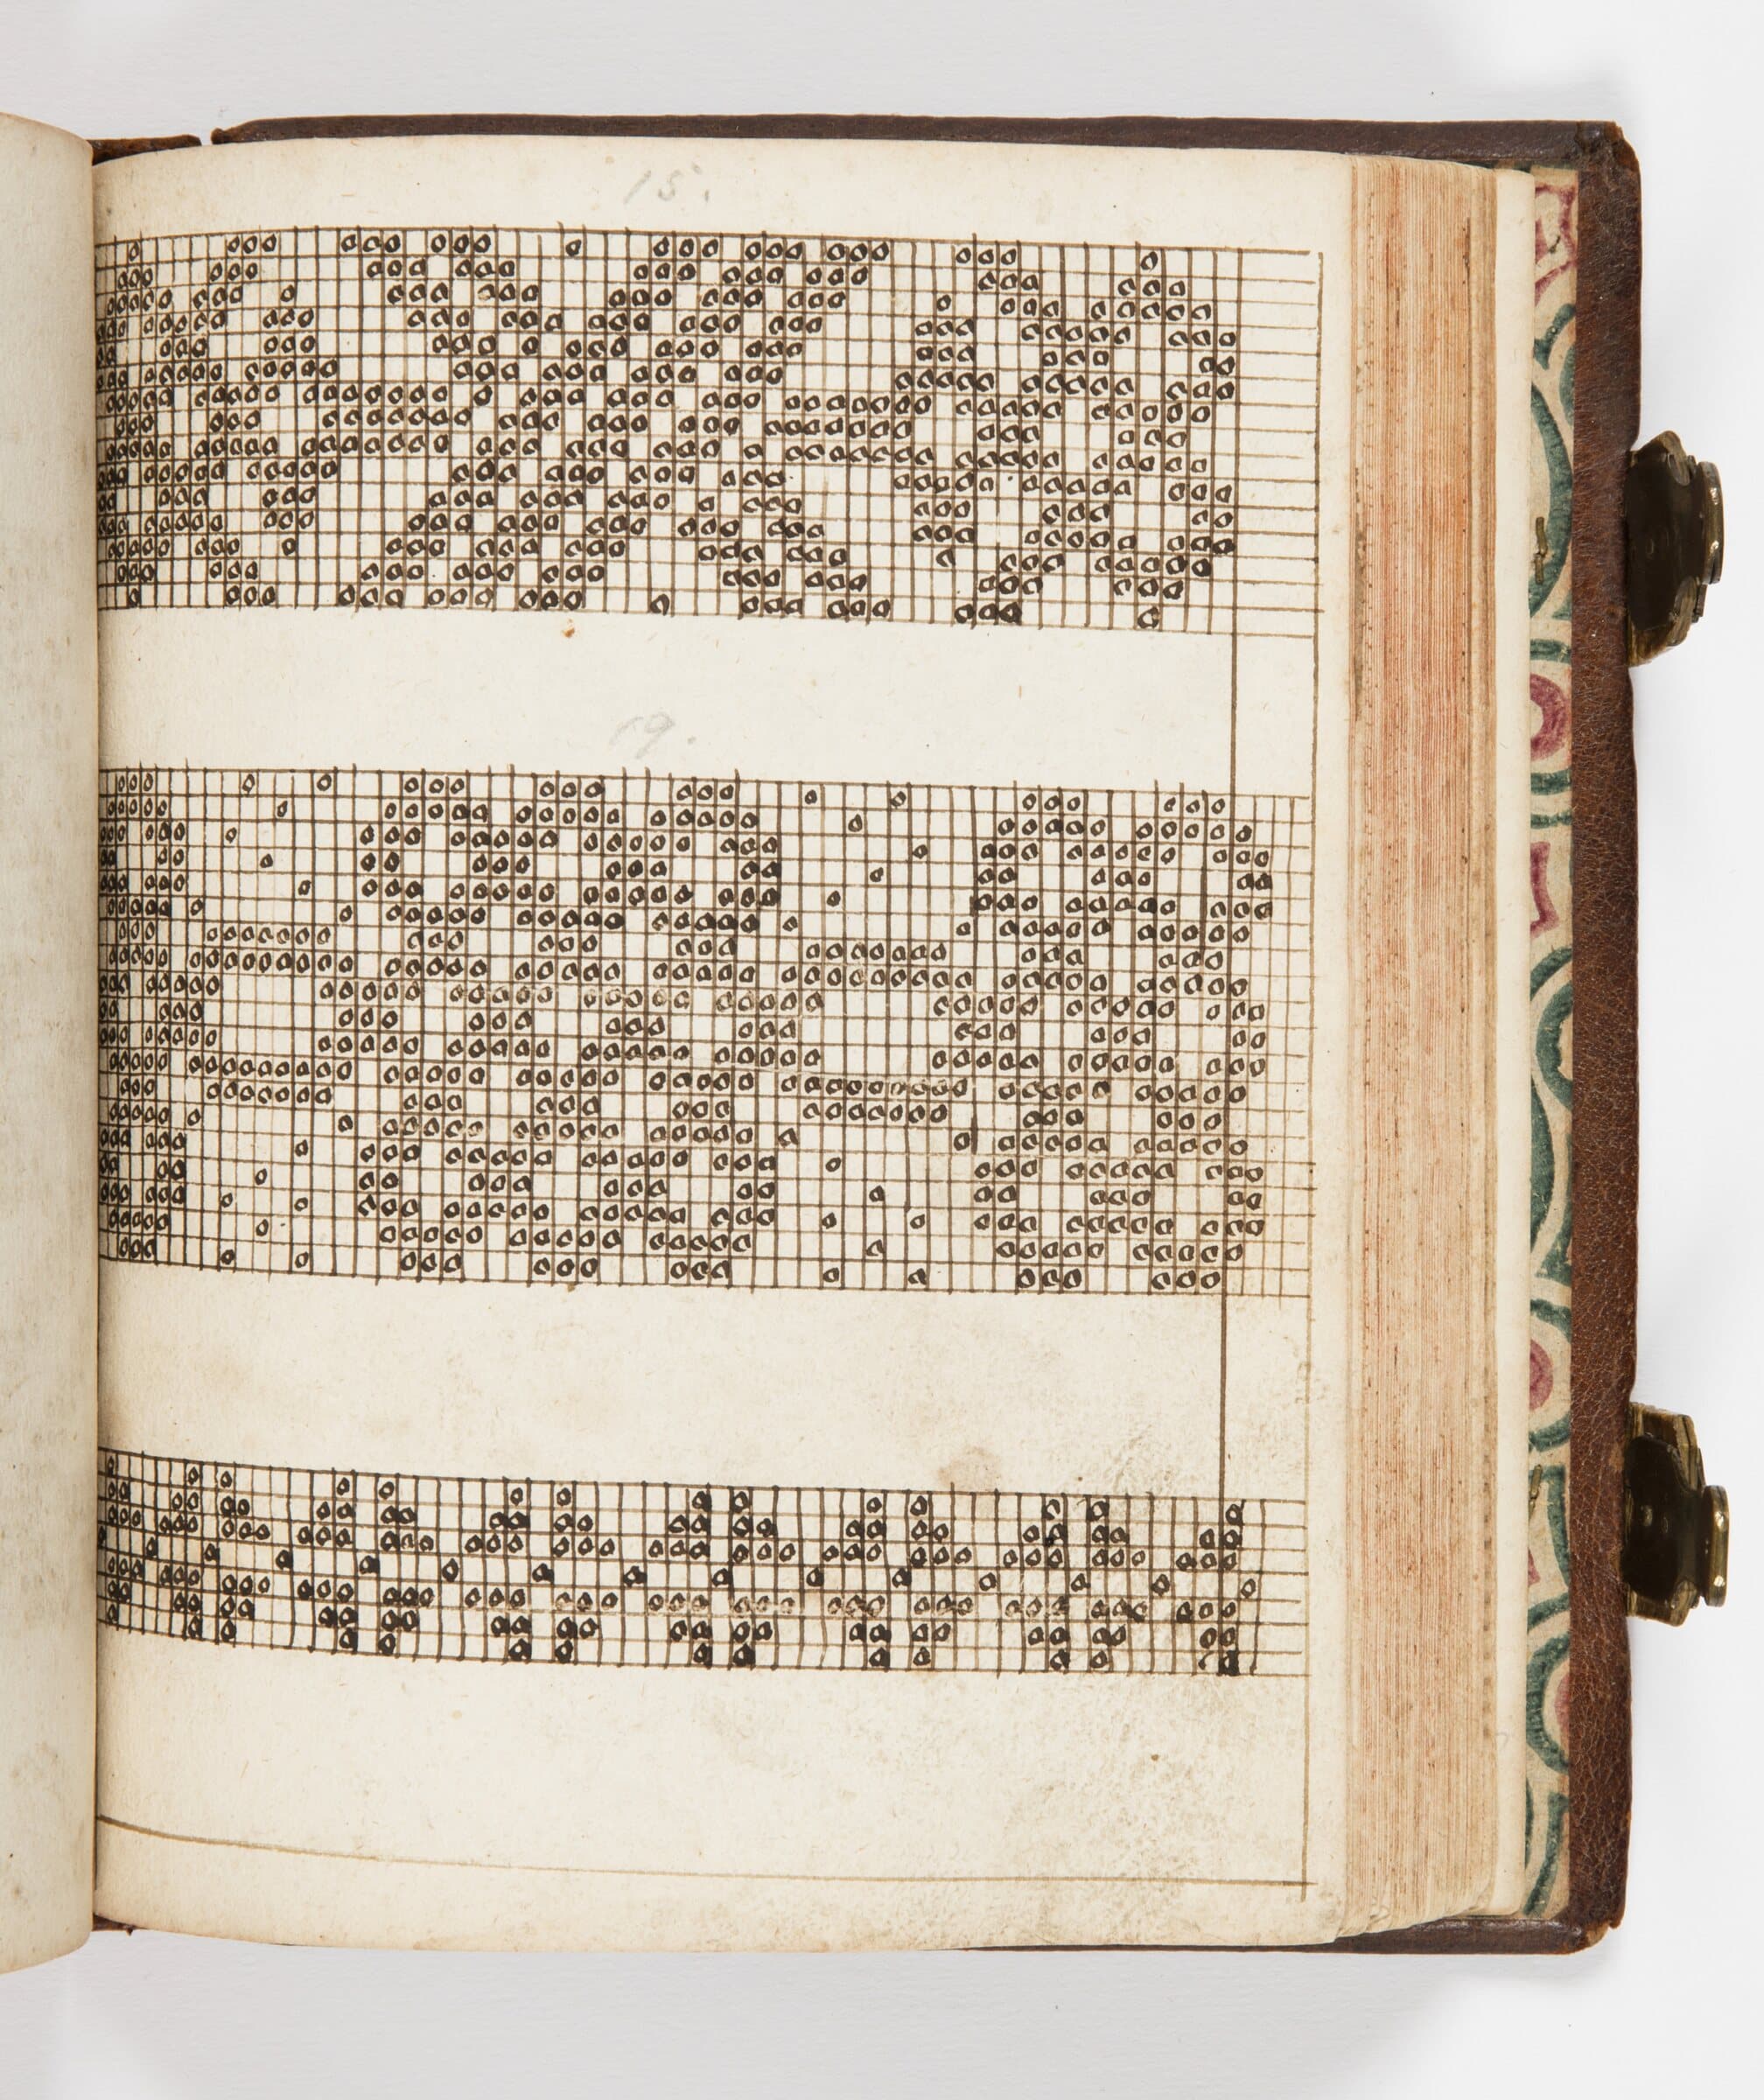 15.
19.